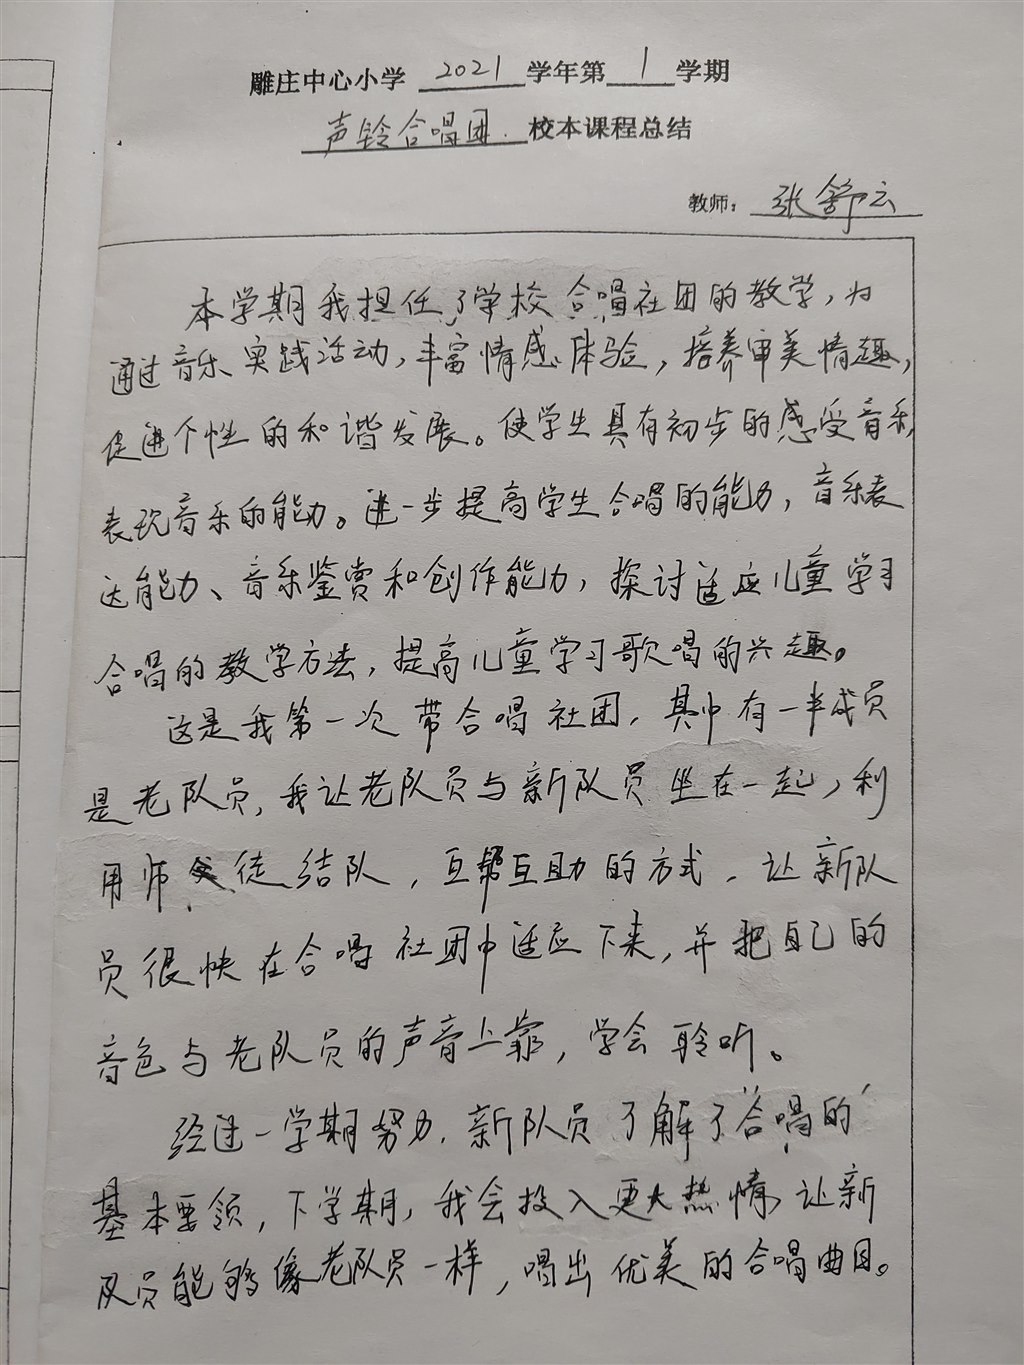 雕庄中心小学 2021 学年第 1 学期
声铃合唱团 校本课程总结
教师：张舒云
本学期我担任了学校合唱社团的教学，为
通过音乐实践活动，丰富情感体验，培养审美情趣，
促进个性的和谐发展。使学生具有初步的感受音乐，
表现音乐的能力。进一步提高学生合唱的能力，音乐表
达能力、音乐鉴赏和创作能力，探讨适应儿童学习
合唱的教学方法，提高儿童学习歌唱的兴趣。
这是我第一次带合唱社团，其中有一半成员
是老队员，我让老队员与新队员坐在一起，利
用师徒结队，互帮互助的方式，让新队
员很快在合唱社团中适应下来，并把自己的
音色与老队员的声音上靠，学会聆听。
经过一学期努力，新队员了解了合唱的
基本要领，下学期，我会投入更大热情，让新
队员能够像老队员一样，唱出优美的合唱曲目。